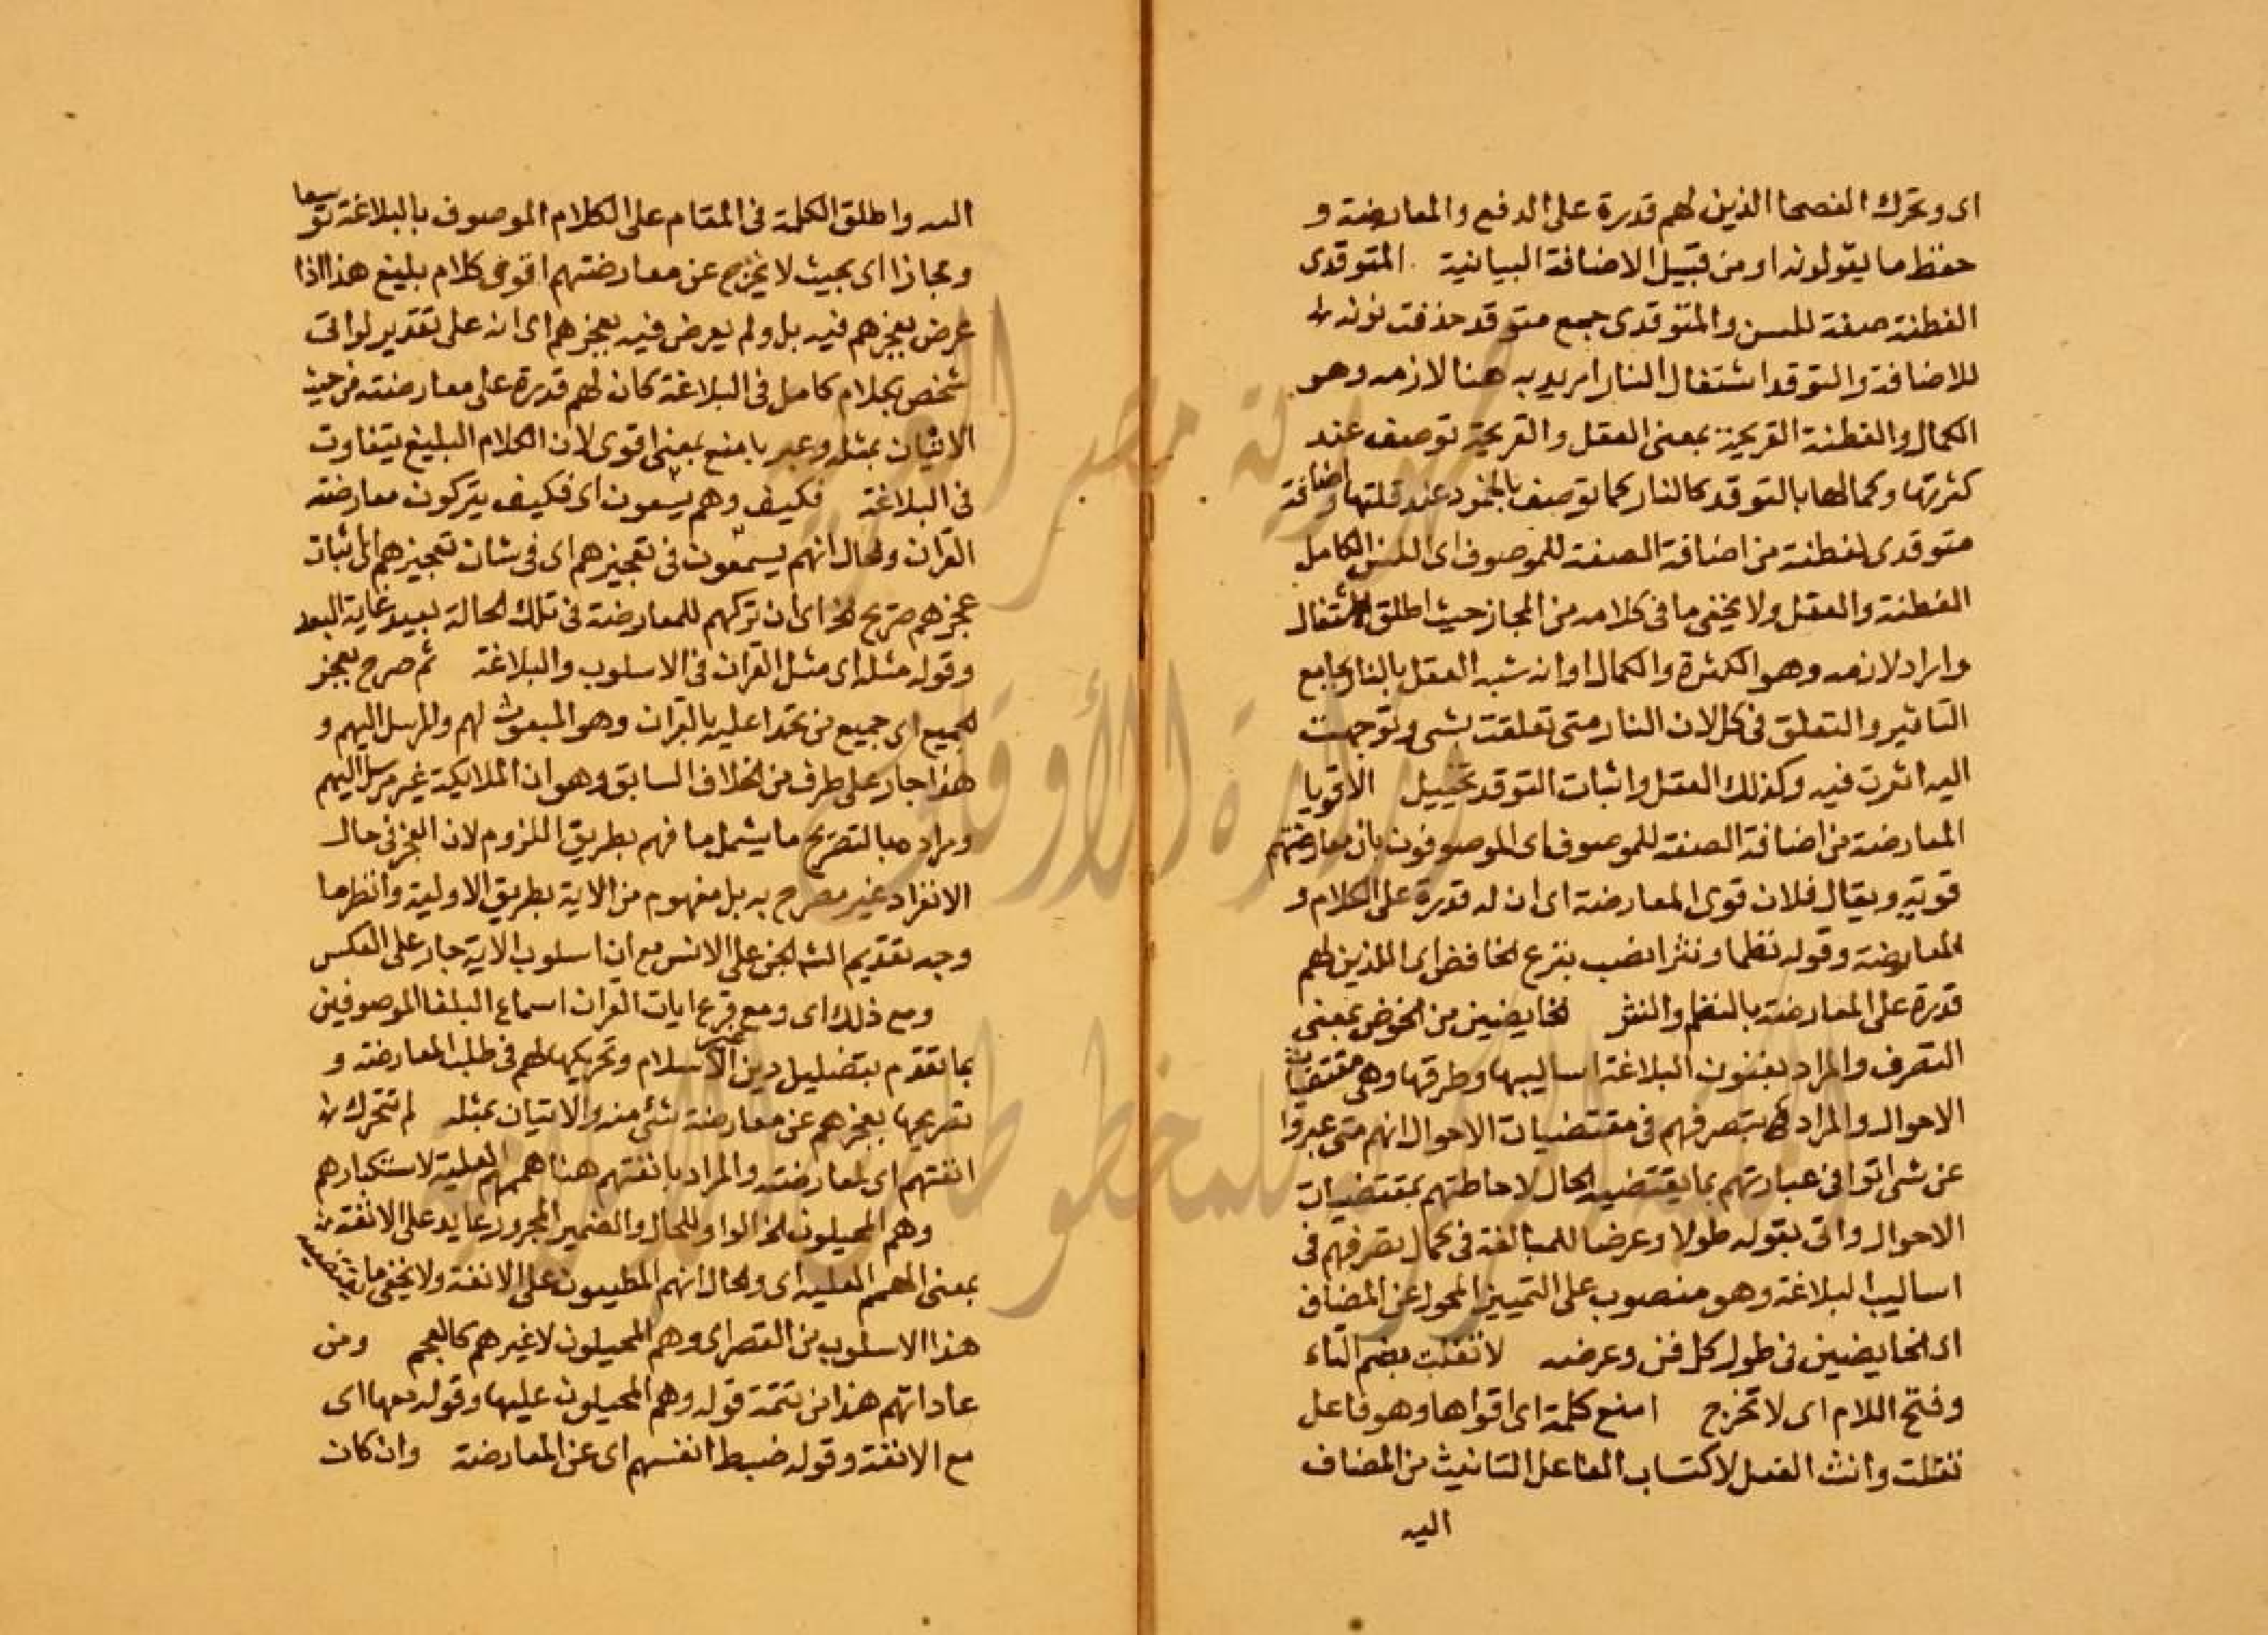 اى وتحرك الفصحا الذين لهم قدرة على الدفع والمعارضة و
حفظ ما يقولونه او من قبيل الاضافة البيانية المتوقدى
الفطنة صفة للسن والمتوقدى جمع متوقد حذفت نونه
للاضافة والتوقد اشتغال النار اريد به هنا لازمه وهو
الكمال والفطنة القريحة بمعنى العقل والقريحة توصف عند
كثرتها وكمالها بالتوقد كالنار كما توصف بالخمود عند قلتها واضافة
متوقدى لفطنة من اضافة الصفة للموصوف اى اللسن الكامل
الفطنة والعقل ولا يخفى ما فى كلامه من المجاز حيث اطلق الاشتغال
واراد لازمه وهو الكثرة والكمال او انه شبه العقل بالنار بجامع
التاثير والتعلق فى كل لان النار متى تعلقت بشى وتوجهت
اليه اثرت فيه وكذلك العقل واثبات التوقد تخييل الاقويا
المعارضة من اضافة الصفة للموصوف اى الموصوفون بان معارضتهم
قوية ويقال فلان قوى المعارضة اى ان له قدرة على الكلام و
المعارضة وقوله نظما ونثرا نصب بنزع الخافض اى الذين لهم
قدرة على المعارضة بالنظم والنثر الخايضين من الخوض بمعنى
التصرف والمراد بفنون البلاغة اساليبها وطرقها وهى مقتضيات
الاحوال والمراد بتصرفهم فى مقتضيات الاحوال انهم متى عبروا
عن شى اتوا فى عبارتهم بما يقتضيه الحال لاحاطتهم بمقتضيات
الاحوال واتى بقوله طولا وعرضا للمبالغة فى كمال تصرفهم فى
اساليب البلاغة وهو منصوب على التمييز المحول عن المضاف
اى الخايضين فى طول كل فن وعرضه لا تفلت بضم التاء
وفتح اللام اى لا تخرج امنع كلمة اى اقواها وهو فاعل
تفلت وانث الفعل لاكتساب الفاعل التانيث من المضاف
اليه
اليه واطلق الكلمة فى المقام على الكلام الموصوف بالبلاغة توسعا
ومجازا اى بحيث لا يخرج عن معارضتهم اقوى كلام بليغ هذا اذا
عرض بعجزهم فيه بل ولم يعرض فيه بعجزهم اى انه على تقدير لو اتى
شخص بكلام كامل فى البلاغة كان لهم قدرة على معارضته من حيث
الاتيان بمثله وعبر بامنع بمعنى اقوى لان الكلام البليغ يتفاوت
فى البلاغة فكيف وهم يسمعون اى فكيف يتركون معارضته
القران والحال انهم يسمعون فى تعجيزهم اى فى شان تعجيزهم اى اثبات
عجزهم صريح الخ اى ان تركهم للمعارضة فى تلك الحالة بعيد غاية البعد
وقوله مثله اى مثل القران فى الاسلوب والبلاغة ثم صرح بعجز
الجميع اى جميع من تحدا عليه بالقران وهو المبعوث لهم والمرسل اليهم و
هذا جار على طرف من الخلاف السابق وهو ان الملايكة غير مرسل اليهم
ومراده بالتصريح ما يشمل ما فهم بطريق اللزوم لان العجز فى حال
الانفراد غير مصرح به بل مفهوم من الاية بطريق الاولية وانظر ما
وجه تقديم الجن على الانس مع ان اسلوب الاية جار على العكس
ومع ذلك اى ومع قرع ايات القران اسماع البلغا الموصوفين
بما تقدم بتضليل دين الاسلام وتحريكها لهم فى طلب المعارضة و
تصريحها بعجزهم عن معارضة شئ منه والاتيان بمثله لم تتحرك
انفتهم اى لمعارضته والمراد بانفتهم هنا هممهم العلية لاستكبارهم
وهم المحيلون الخ الواو للحال والضمير المجرور عايد على الانفة
بمعنى الهمم العلية اى والحال انهم المطبعون على الانفة ولا يخفى ما يقتضيه
هذا الاسلوب من القصر اى وهم المحيلون لا غيرهم كالعجم ومن
عاداتهم هذا من تتمة قوله وهم المحيلون عليها وقوله معها اى
مع الانفة وقوله ضبط انفسهم اى عن المعارضة وان كان